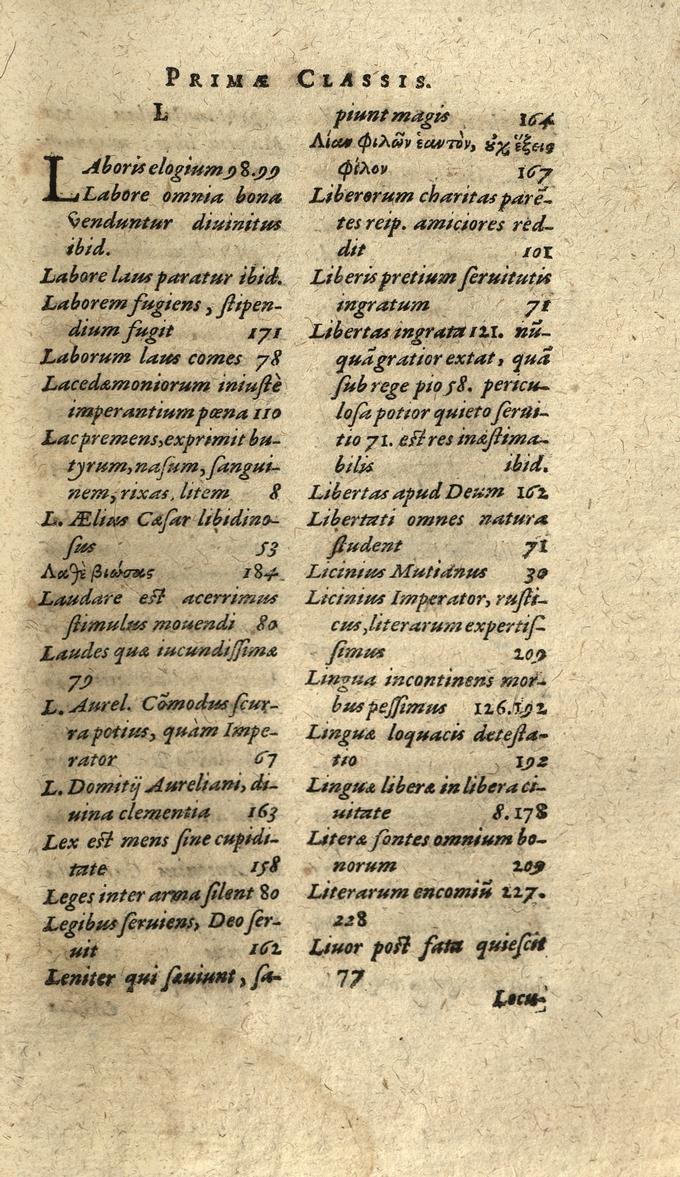 PRIMÆ CLASSIS.
L
LAboris elogium 98.99
Labore omnia bona
venduntur diuinitus
ibid.
Labore laus paratur ibid.
Laborem fugiens, ſtipen-
dium fugit 171
Laborum laus comes 78
Lacedæmoniorum iniuſtè
imperantium pœna 110
Lac premens, exprimit bu-
tyrum, naſum, ſangui-
nem, rixas, litem 8
L. Ælius Cæſar libidino-
ſus 53
Λαθὲ βιώσας 184
Laudare est acerrimus
ſtimulus mouendi 80
Laudes quæ iucundiſſimæ
79
L. Aurel. Cõmodus ſcur-
ra potius, quàm Impe-
rator 67
L. Domitij Aureliani, di-
uina clementia 163
Lex est mens ſine cupidi-
tate 158
Leges inter arma ſilent 80
Legibus ſeruiens, Deo ſer-
uit 162
Leniter qui ſæuiunt, ſa-
piunt magis 164
Λίαν φιλῶν ἑαυτὸν, οὐχ ἕξεις
φίλον 167
Liberorum charitas parẽ-
tes reip. amiciores red-
dit 101
Liberis pretium ſeruitutis
ingratum 71
Libertas ingrata 121. nũ-
quã gratior extat, quã
ſub rege pio 58. pericu-
loſa potior quieto ſerui-
tio 71. est res inæſtima-
bilis ibid.
Libertas apud Deum 162
Libertati omnes natura
ſtudent 71
Licinius Mutianus 30
Licinius Imperator, ruſti-
cus, literarum expertiſ-
ſimus 209
Lingua incontinens mor-
bus peſſimus 126.192
Linguæ loquacis deteſta-
tio 192
Linguæ liberæ in libera ci-
uitate 8.178
Literæ fontes omnium bo-
norum 209
Literarum encomiũ 227.
228
Liuor post fata quieſcit
77
Locu-